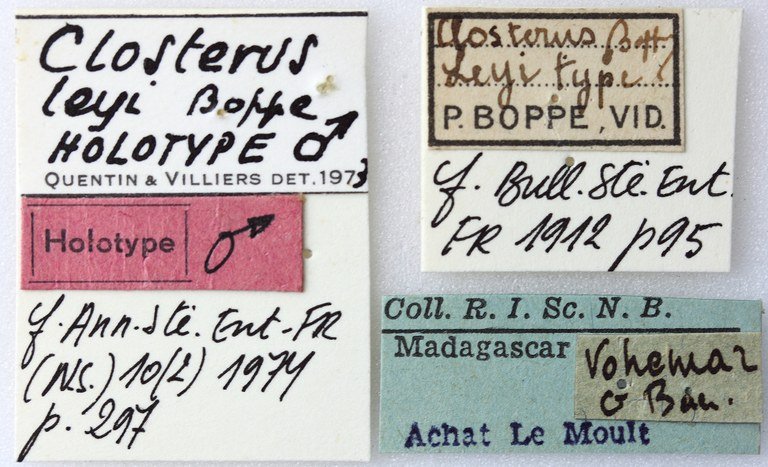 Closterus
leyi Boppe
HOLOTYPE ♂
QUENTIN & VILLIERS DET. 1973
Holotype ♂
cf. Ann. Sté. Ent. FR
(NS.) 10(2) 1974
p. 297
Closterus
Leyi type
P. BOPPE, VID.
cf. Bull. Sté. Ent.
FR 1912 p95
Coll. R. I. Sc. N. B.
Madagascar
Vohemar
Achat Le Moult